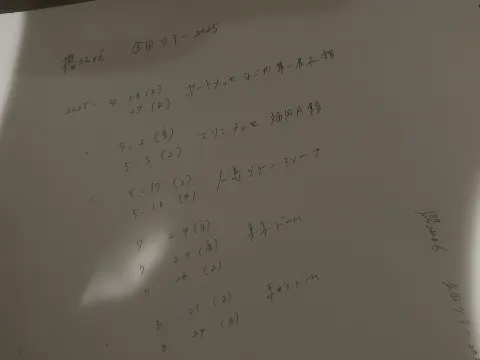 櫻坂46 全国ツアー 2025
2025. 4. 26 (土)
27 (日) ポートメッセなごや 第一展示館
5. 2 (金)
5. 3 (土) マリンメッセ 福岡A館
5. 17 (土)
5. 18 (日) 広島グリーンアリーナ
7. 24 (木)
25 (金) 東京ドーム
26 (土)
8 23 (土)
8 24 (日)
櫻坂46
全国ツアー 20